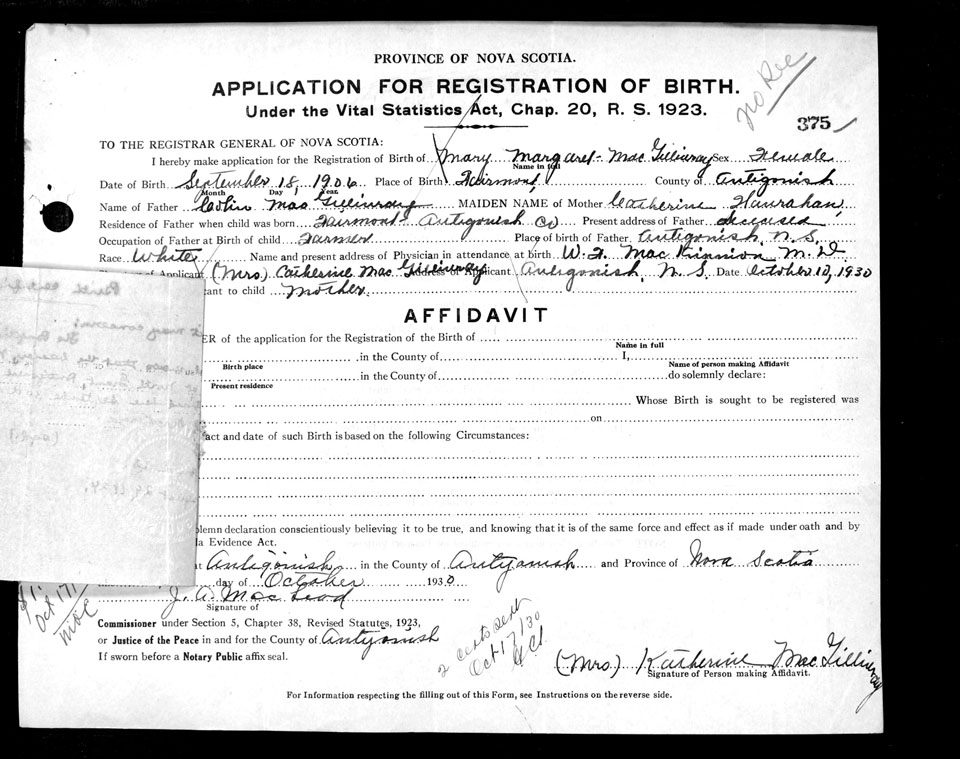 PROVINCE OF NOVA SCOTIA.
no Rec
APPLICATION FOR REGISTRATION OF BIRTH.
Under the Vital Statistics Act, Chap. 20, R. S. 1923.
375
TO THE REGISTRAR GENERAL OF NOVA SCOTIA:
I hereby make application for the Registration of Birth of Mary Margaret Mac Gillivray Sex Female
Name in full
Date of Birth September 18, 1906 Place of Birth Fairmont, County of Antigonish
Month Day Year
Name of Father Colin Mac Gillivray MAIDEN NAME of Mother Catherine Hanrahan,
Residence of Father when child was born Fairmont Antigonish Co Present address of Father deceased
Occupation of Father at Birth of child Farmer Place of birth of Father Antigonish, N. S.
Race White Name and present address of Physician in attendance at birth W. F. Mac Kinnon M. D
of Applicant (Mrs.) Catherine Mac Gillivray Address of Applicant Antigonish, N. S. Date October 10, 1930
ant to child Mother
AFFIDAVIT
ER of the application for the Registration of the Birth of
Name in full
, in the County of I,
Birth place Name of person making Affidavit
in the County of do solemnly declare:
Present residence
Whose Birth is sought to be registered was
on
act and date of such Birth is based on the following Circumstances:
olemn declaration conscientiously believing it to be true, and knowing that it is of the same force and effect as if made under oath and by
a Evidence Act.
at Antigonish in the County of Antigonish and Province of Nova Scotia
day of October 1930
J. A. Mac Leod
Signature of
Oct 17
more
Commissioner under Section 5, Chapter 38, Revised Statutes, 1923,
or Justice of the Peace in and for the County of Antigonish
If sworn before a Notary Public affix seal.
2 certs sent
Oct 17/30
(Mrs.) Katherine Mac Gillivray
Signature of Person making Affidavit.
For Information respecting the filling out of this Form, see Instructions on the reverse side.